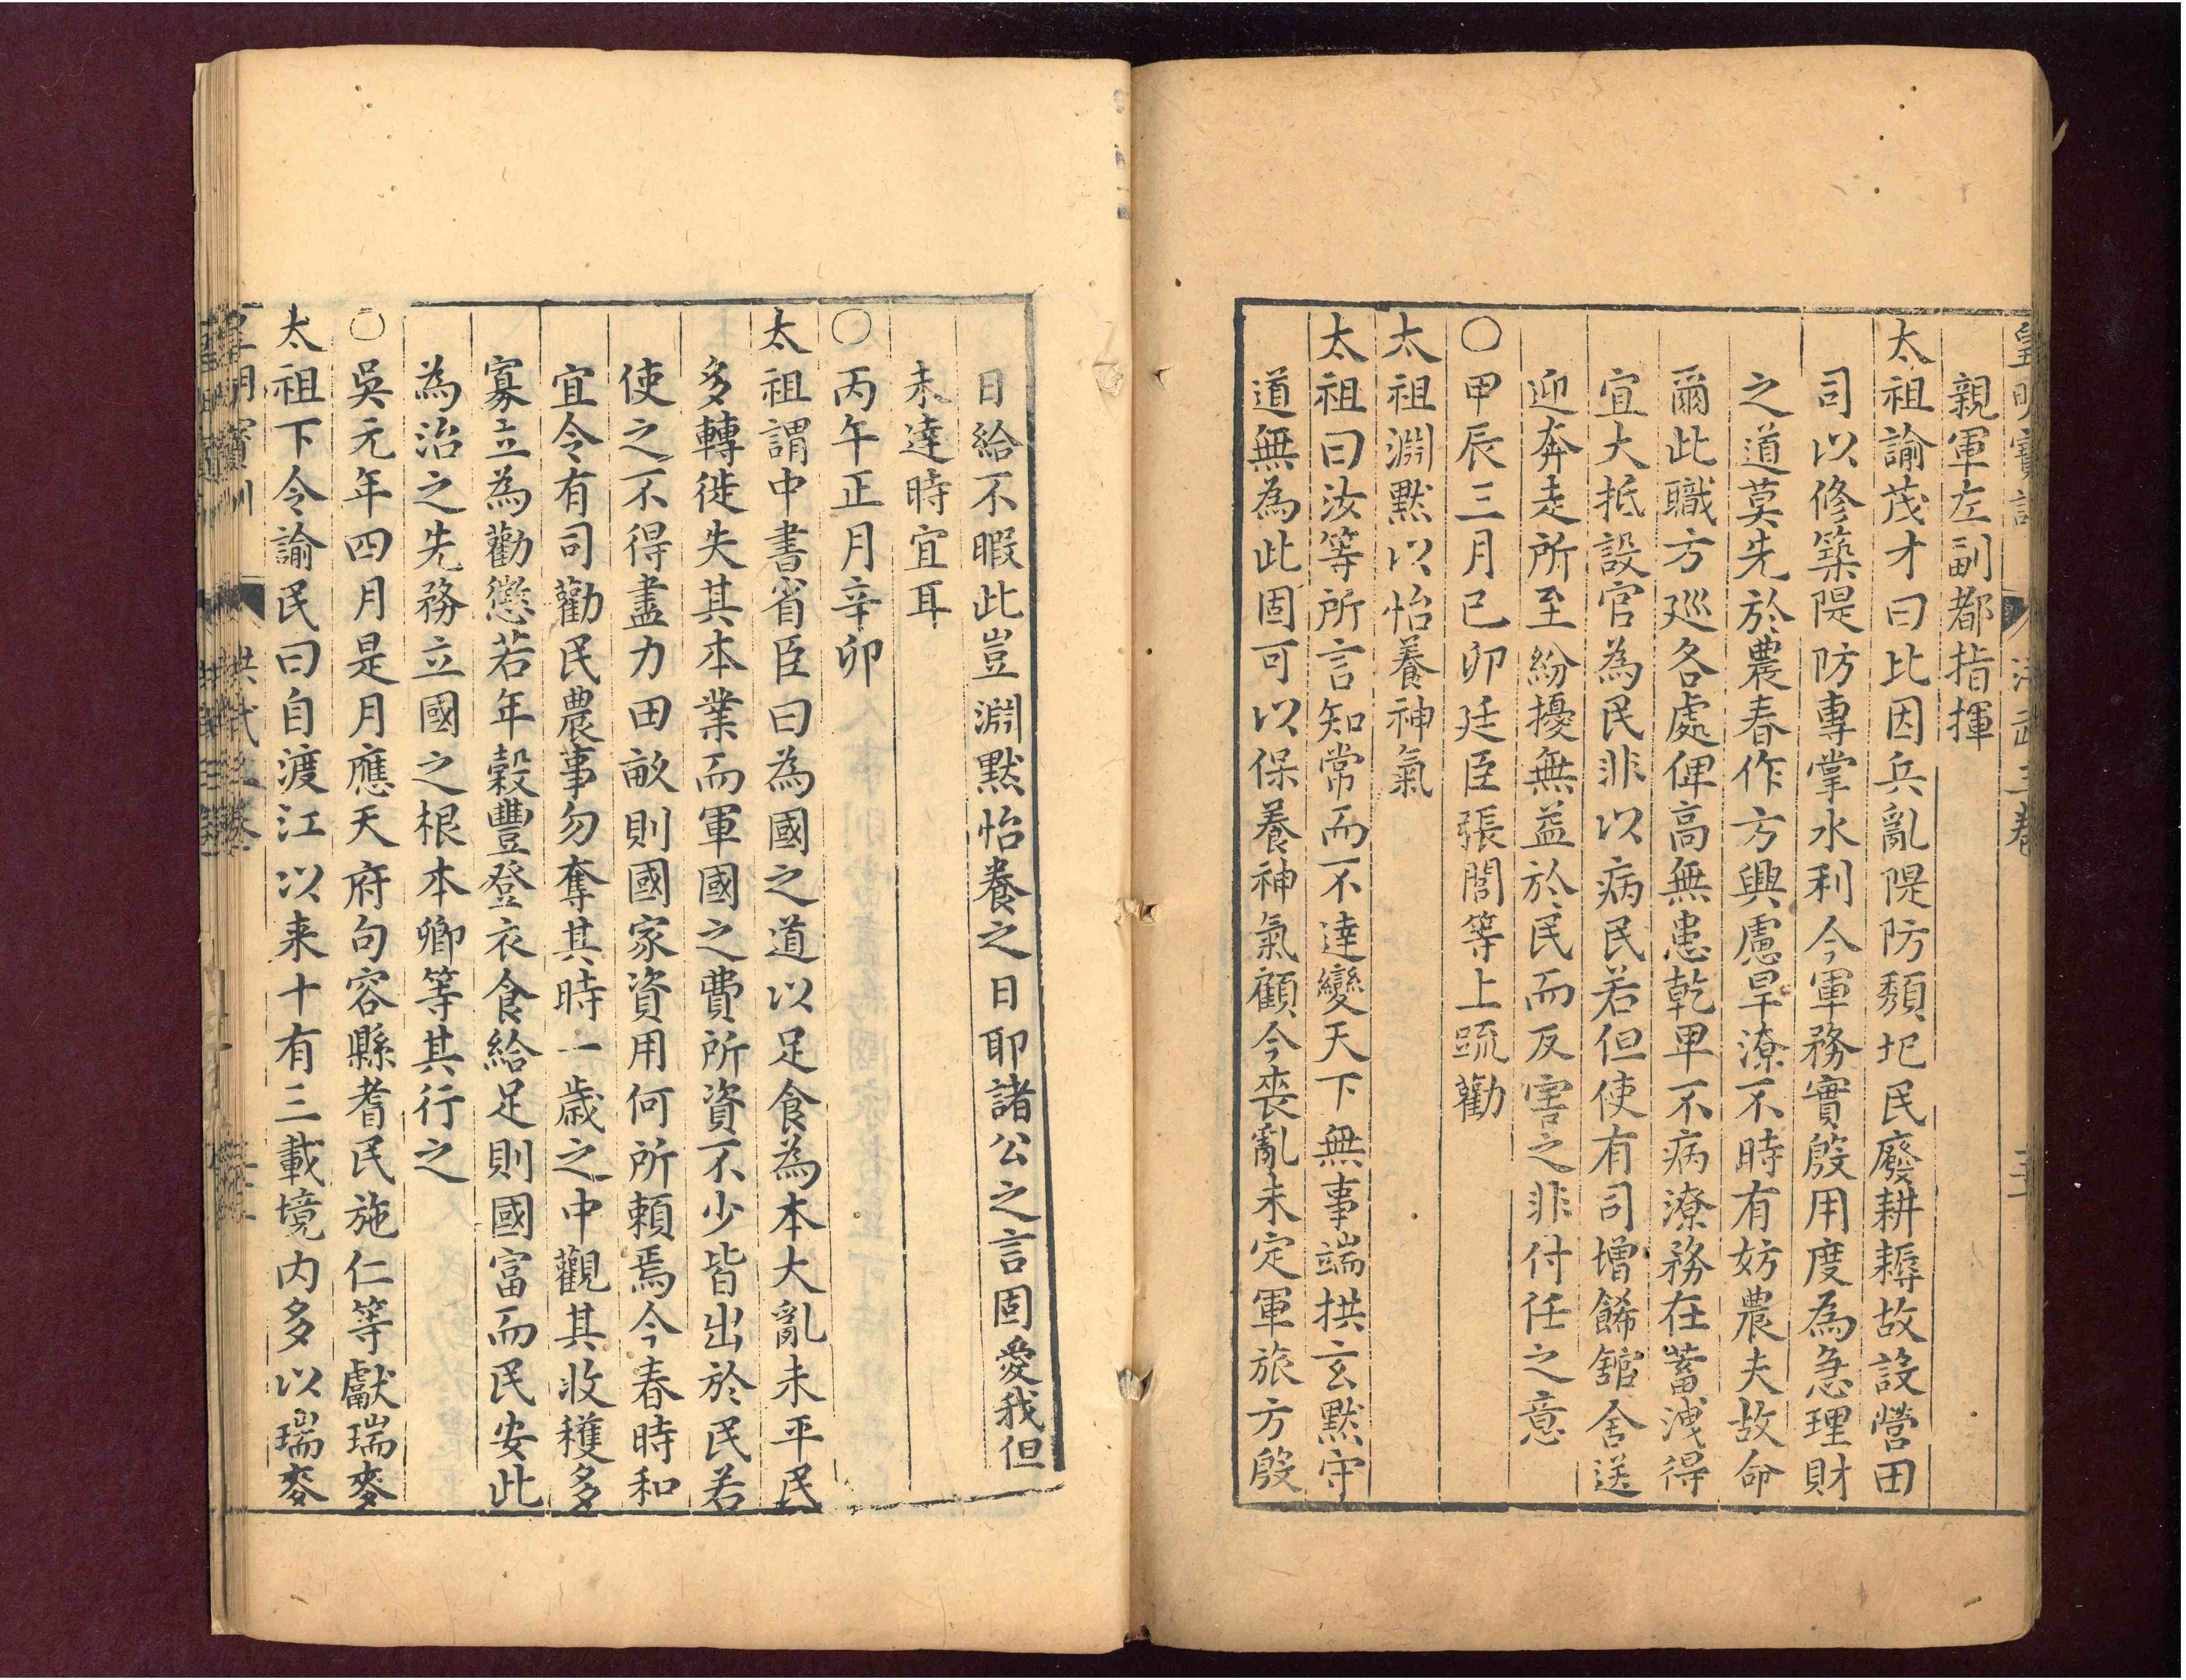 皇明寶訓 洪武三卷
親軍左副都指揮
太祖諭茂才曰比因兵亂隄防頹圮民廢耕耨故設營田
司以修築隄防專掌水利今軍務實殷用度為急理財
之道莫先於農春作方興慮旱潦不時有妨農夫故命
爾此職方廵各處俾高無患乾卑不病潦務在蓄洩得
宜大抵設官為民非以病民若但使有司增餙舘舍送
迎奔走所至紛擾無益於民而反害之非付任之意
○甲辰三月已卯廷臣張閭等上䟽勸
太祖淵默以怡養神氣
太祖曰汝等所言知常而不達變天下無事端拱玄默守
道無為此固可以保養神氣顧今喪亂未定軍旅方殷
日給不暇此豈淵默怡養之日耶諸公之言固愛我但
未達時宜耳
○丙午正月辛卯
太祖謂中書省臣曰為國之道以足食為本大亂未平民
多轉徙失其本業而軍國之費所資不少皆出於民若
使之不得盡力田畝則國家資用何所賴焉今春時和
宜令有司勸民農事勿奪其時一歲之中觀其收穫多
寡立為勸懲若年穀豐登衣食給足則國富而民安此
為治之先務立國之根本卿等其行之
○吳元年四月是月應天府句容縣耆民施仁等獻瑞麥
太祖下令諭民曰自渡江以来十有三載境内多以瑞麥